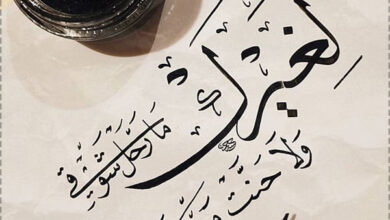 لِغيرك
مَا رَحَلَ شَوْقِي
وَلَا حَنَّتْ